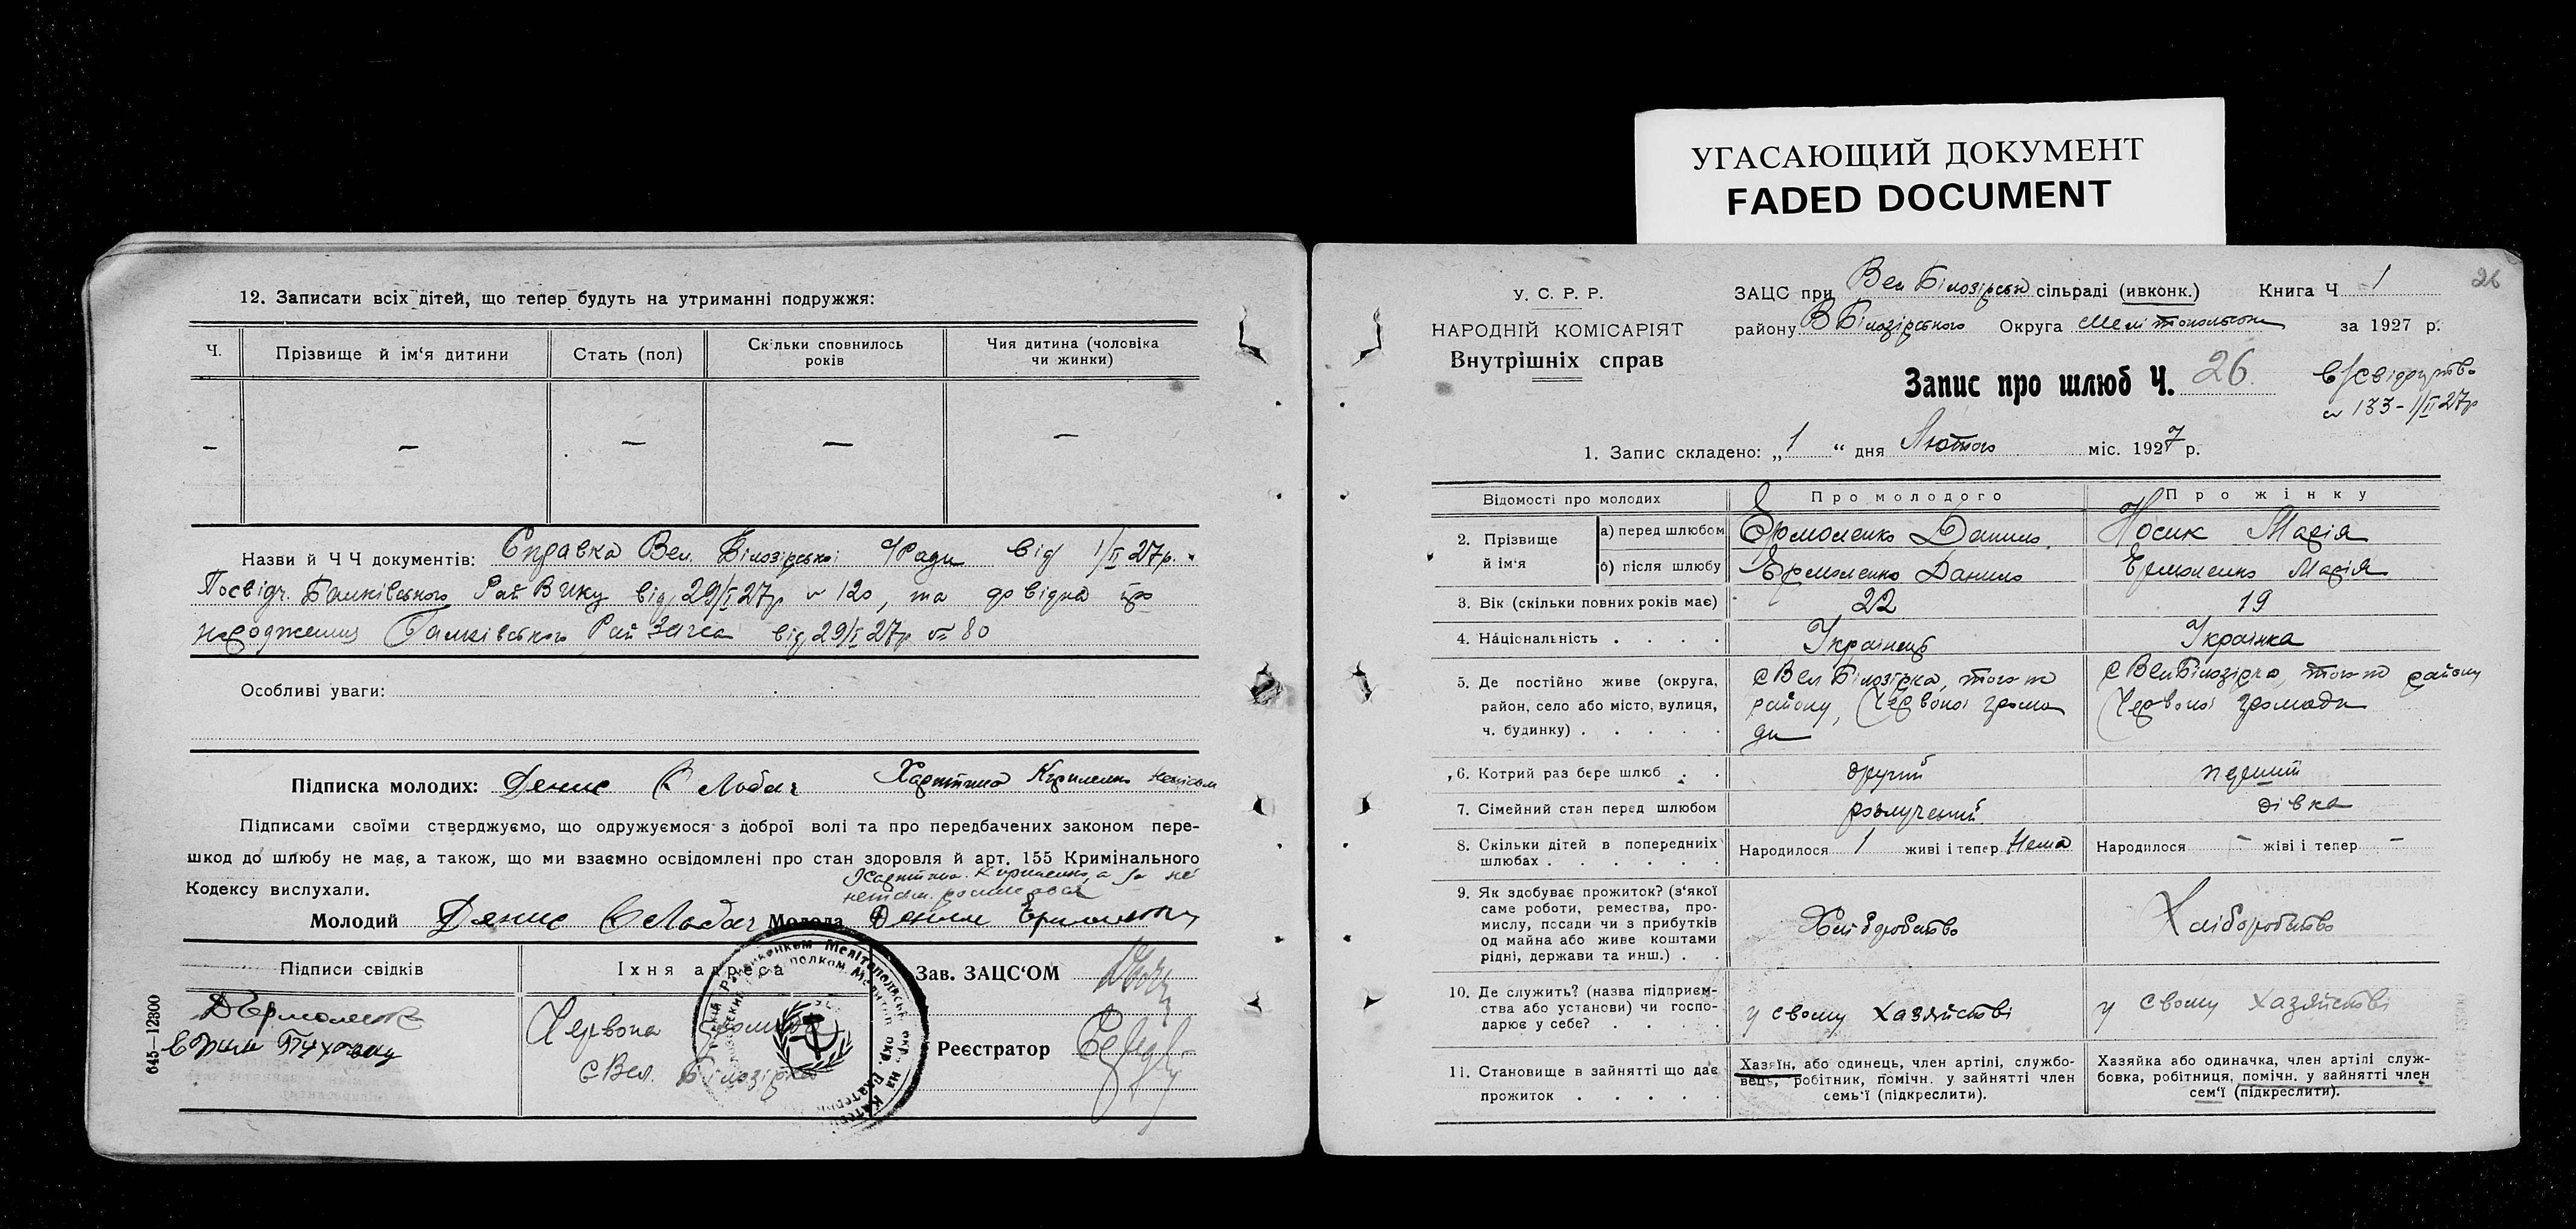 УГАСАЮЩИЙ ДОКУМЕНТ
FADED DOCUMENT
12. Записати всіх дітей, що тепер будуть на утриманні подружжя:
Ч.
Прізвище й ім'я дитини
Стать (пол)
Скільки сповнилось років
Чия дитина (чоловіка чи жинки)
— — — — —
Назви й Ч Ч документів: Справка Вел. Білозірської Ради від 1/II 27р.
Посвідч. Рай Вику від 29/I 27р № 120, та довідка про
народження Рай Загса від 29/I 27р № 80
Особливі уваги:
Підписка молодих: Денис Лобач Харитина Кириленко
Підписами своїми стверджуємо, що одружуємося з доброї волі та про передбачених законом пере-
шкод до шлюбу не має, а також, що ми взаємно освідомлені про стан здоровля й арт. 155 Кримінального
Кодексу вислухали.
Харитина Кириленко, а за неї
Молодий Денис Лобач Молода
Підписи свідків
Їхня адреса
Зав. ЗАЦС'ОМ
Червона Громада
с Вел. Білозірка
Реєстратор
645—12300
26
У. С. Р. Р.
НАРОДНІЙ КОМІСАРІЯТ
Внутрішніх справ
ЗАЦС при Вел Білозірськ сільраді (ивконк.) Книга Ч 1
району В Білозірського Округа Мелітопольськ за 1927 р.
Запис про шлюб Ч. 26
в/свідоцтво
№ 133 - 1/II 27р
1. Запис складено: „1“ дня Лютого міс. 1927 р.
Відомості про молодих
Про молодого
Про жінку
2. Прізвище й ім'я
а) перед шлюбом Єрмоленко Данило Носик Марія
б) після шлюбу Єрмоленко Данило Єрмоленко Марія
3. Вік (скільки повних років має) 22 19
4. Національність . . . . Українець Українка
5. Де постійно живе (округа, район, село або місто, вулиця, ч. будинку) . . . . .
с Вел Білозірка, того ж
району, Червоної грома
ди
с Вел Білозірка, того ж району
Червоної громади
6. Котрий раз бере шлюб . . другий перший
7. Сімейний стан перед шлюбом розлучений дівка
8. Скільки дітей в попередніх шлюбах . . . . . .
Народилося 1 живі і тепер Нема
Народилося — живі і тепер —
9. Як здобуває прожиток? (з'якої саме роботи, ремества, промислу, посади чи з прибутків од майна або живе коштами рідні, держави та инш.) . .
Хліборобство
Хліборобство
10. Де служить? (назва підприємства або установи) чи господарює у себе? . . . . .
у свому хазяйстві
у свому хазяйстві
11. Становище в зайнятті що дає прожиток . . . . .
Хазяїн, або одинець, член артілі, службовець, робітник, помічн. у зайнятті член семь'ї (підкреслити).
Хазяйка або одиначка, член артілі службовка, робітниця, помічн. у зайнятті член сем'ї (підкреслити).